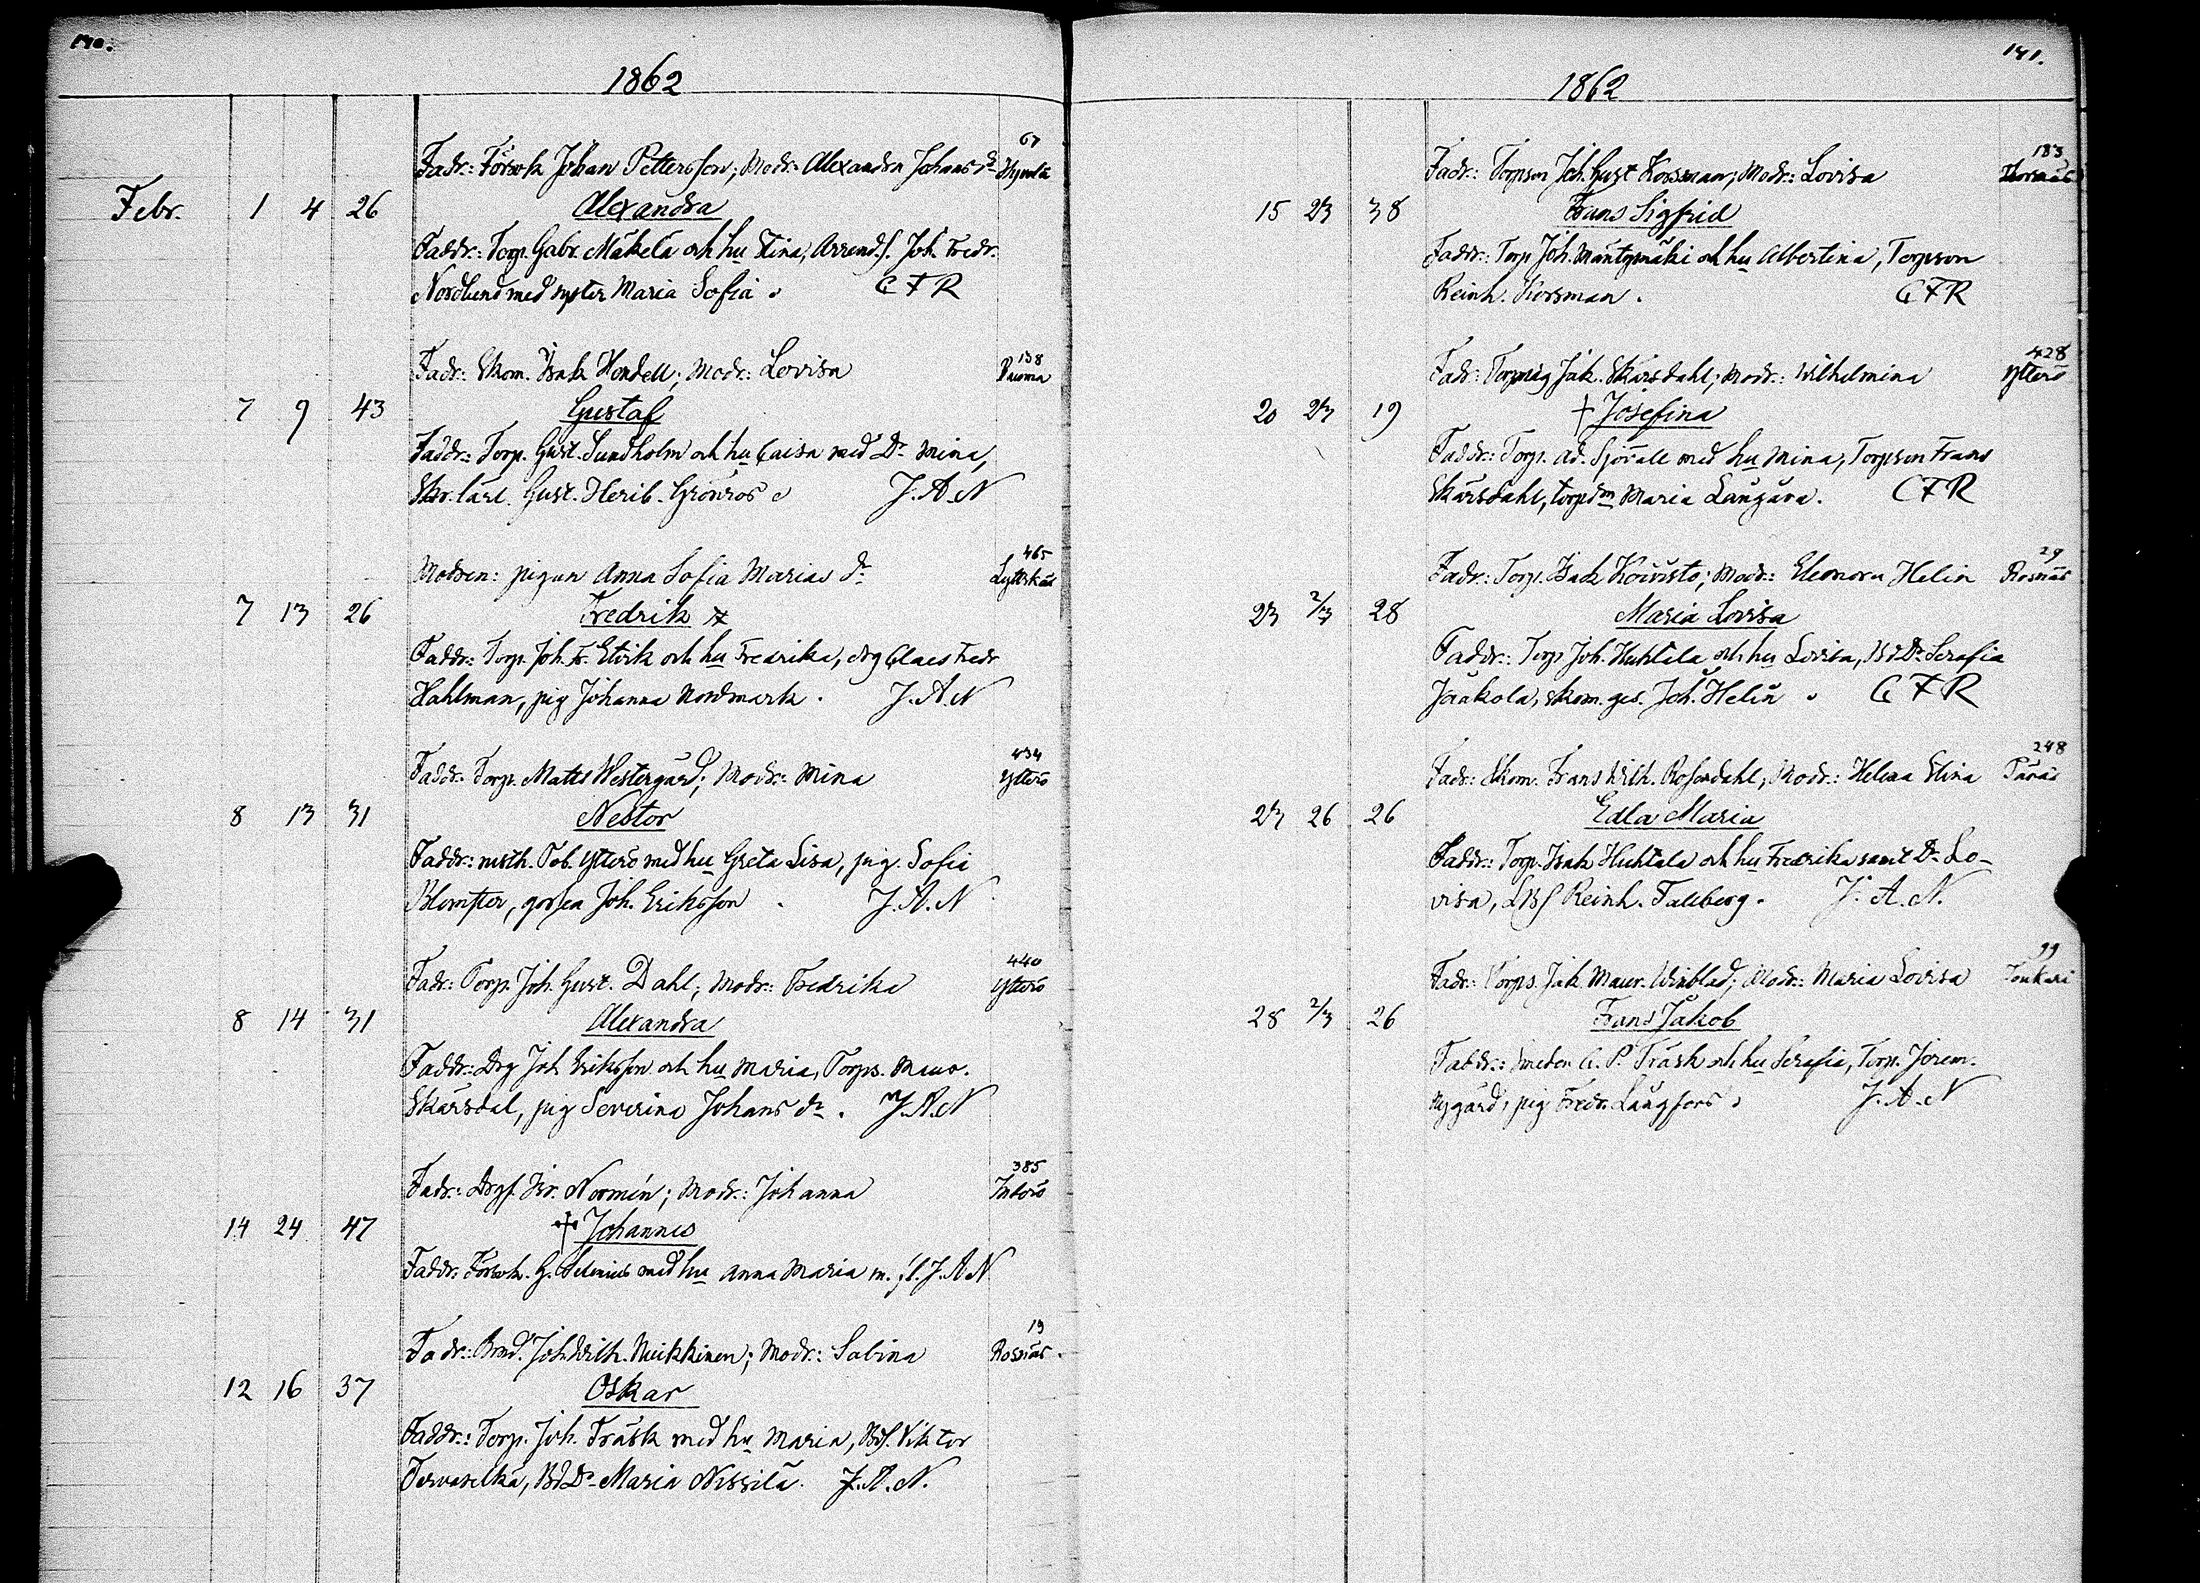 140.
1862
67
Fadr.: Försvk Johan Pettersson; Modr: Alexandra Johans dr
Febr. 1 4 26 Alexandra
Faddr.: Torp. Gabr. Mäkelä och hu Stina, Arrend.s. Joh. Fredr.
Nordlund med syster Maria Sofia. C F R
138
Fadr: Skom. Isak Hondell; Modr: Lovisa Raumo
7 9 43 Gustaf
Faddr.: Torp. Gust. Sundholm och hu Caisa med Dr Mina,
Skr. lärl. Gust. Herib. Grönros J. A. N
465
Modren: pigan Anna Sofia Marias dr Lyttskär
7 13 26 Fredrik
Faddr.: Torp. Joh. Fr. Elvik och hu Fredrika, drg Claes Fredr
Hahlman, pig Johanna Nordmark. J. A. N
434
Fadr. Torp. Matts Westergård; Modr: Mina Ytterö
8 13 31 Nestor
Faddr: Tob. Ytterö med hu Greta Lisa, pig. Sofia
Blomster, gossen Joh. Eriksson. J. A. N
440
Fadr: Torp. Joh. Gust. Dahl; Modr: Fredrika Ytterö
8 14 31 Alexandra
Faddr.: Drg Joh Eriksson och hu Maria, Torps. Maur.
Skärsdal, pig Severina Johans dr. J. A. N
385
Fadr: Drgs. Isr. Normén; Modr: Johanna Inderö
14 24 47 † Johannes
Faddr: Försvk. G. Selenius med hu Anna Maria m. fl. J. A. N
19
Fadr: Bond. Joh. Wilh. Nuikkinen; Modr: Sabina Rosnäs.
12 16 37 Oskar
Faddr.: Torp. Joh. Träsk med hu Maria, Bds. Viktor
Tervaselkä, Bd Dr Maria Nissilä. J. A. N.
141.
1862
183
Fadr: Torpson Joh. Gust Korsman; Modr: Lovisa
15 23 38 Frans Sigfrid
Faddr.: Torp Joh. Mäntymäki och hu Albertina, Torpson
Reinh. Korsman. C F R
428
Fadr: Torpmåg Jak. Skärsdahl; Modr: Wilhelmina Ytterö
20 23 19 † Josefina
Faddr.: Torp. Ad. Sjövall med hu Mina, Torpson Frans
Skärsdahl, torpdm Maria Långära. C F R
29
Fadr: Torp. Isak Koivisto; Modr: Eleonora Helin Rosnäs
23 2/3 28 Maria Lovisa
Faddr.: Torp Joh. Huhtala och hu Lovisa, Bd Dr Serafia
Jaakola, skom. ges. Joh. Helin. C F R
248
Fadr: Skom. Frans Wilh. Rosendahl; Modr: Helena Stina
23 26 26 Edla Maria
Faddr.: Torp. Isak Huhtala och hu Fredrika samt Dr Lo-
visa, Reinh. Falkberg. J. A. N.
99
Fadr: Torps. Jak Maur. Winblad; Modr: Maria Lovisa Toukari
28 2/3 26 Frans Jakob
Faddr.: Smeden C. P. Träsk och hu Serafia, Torp. Jerem.
Nygård, pig Fredr. Långfors. J. A. N